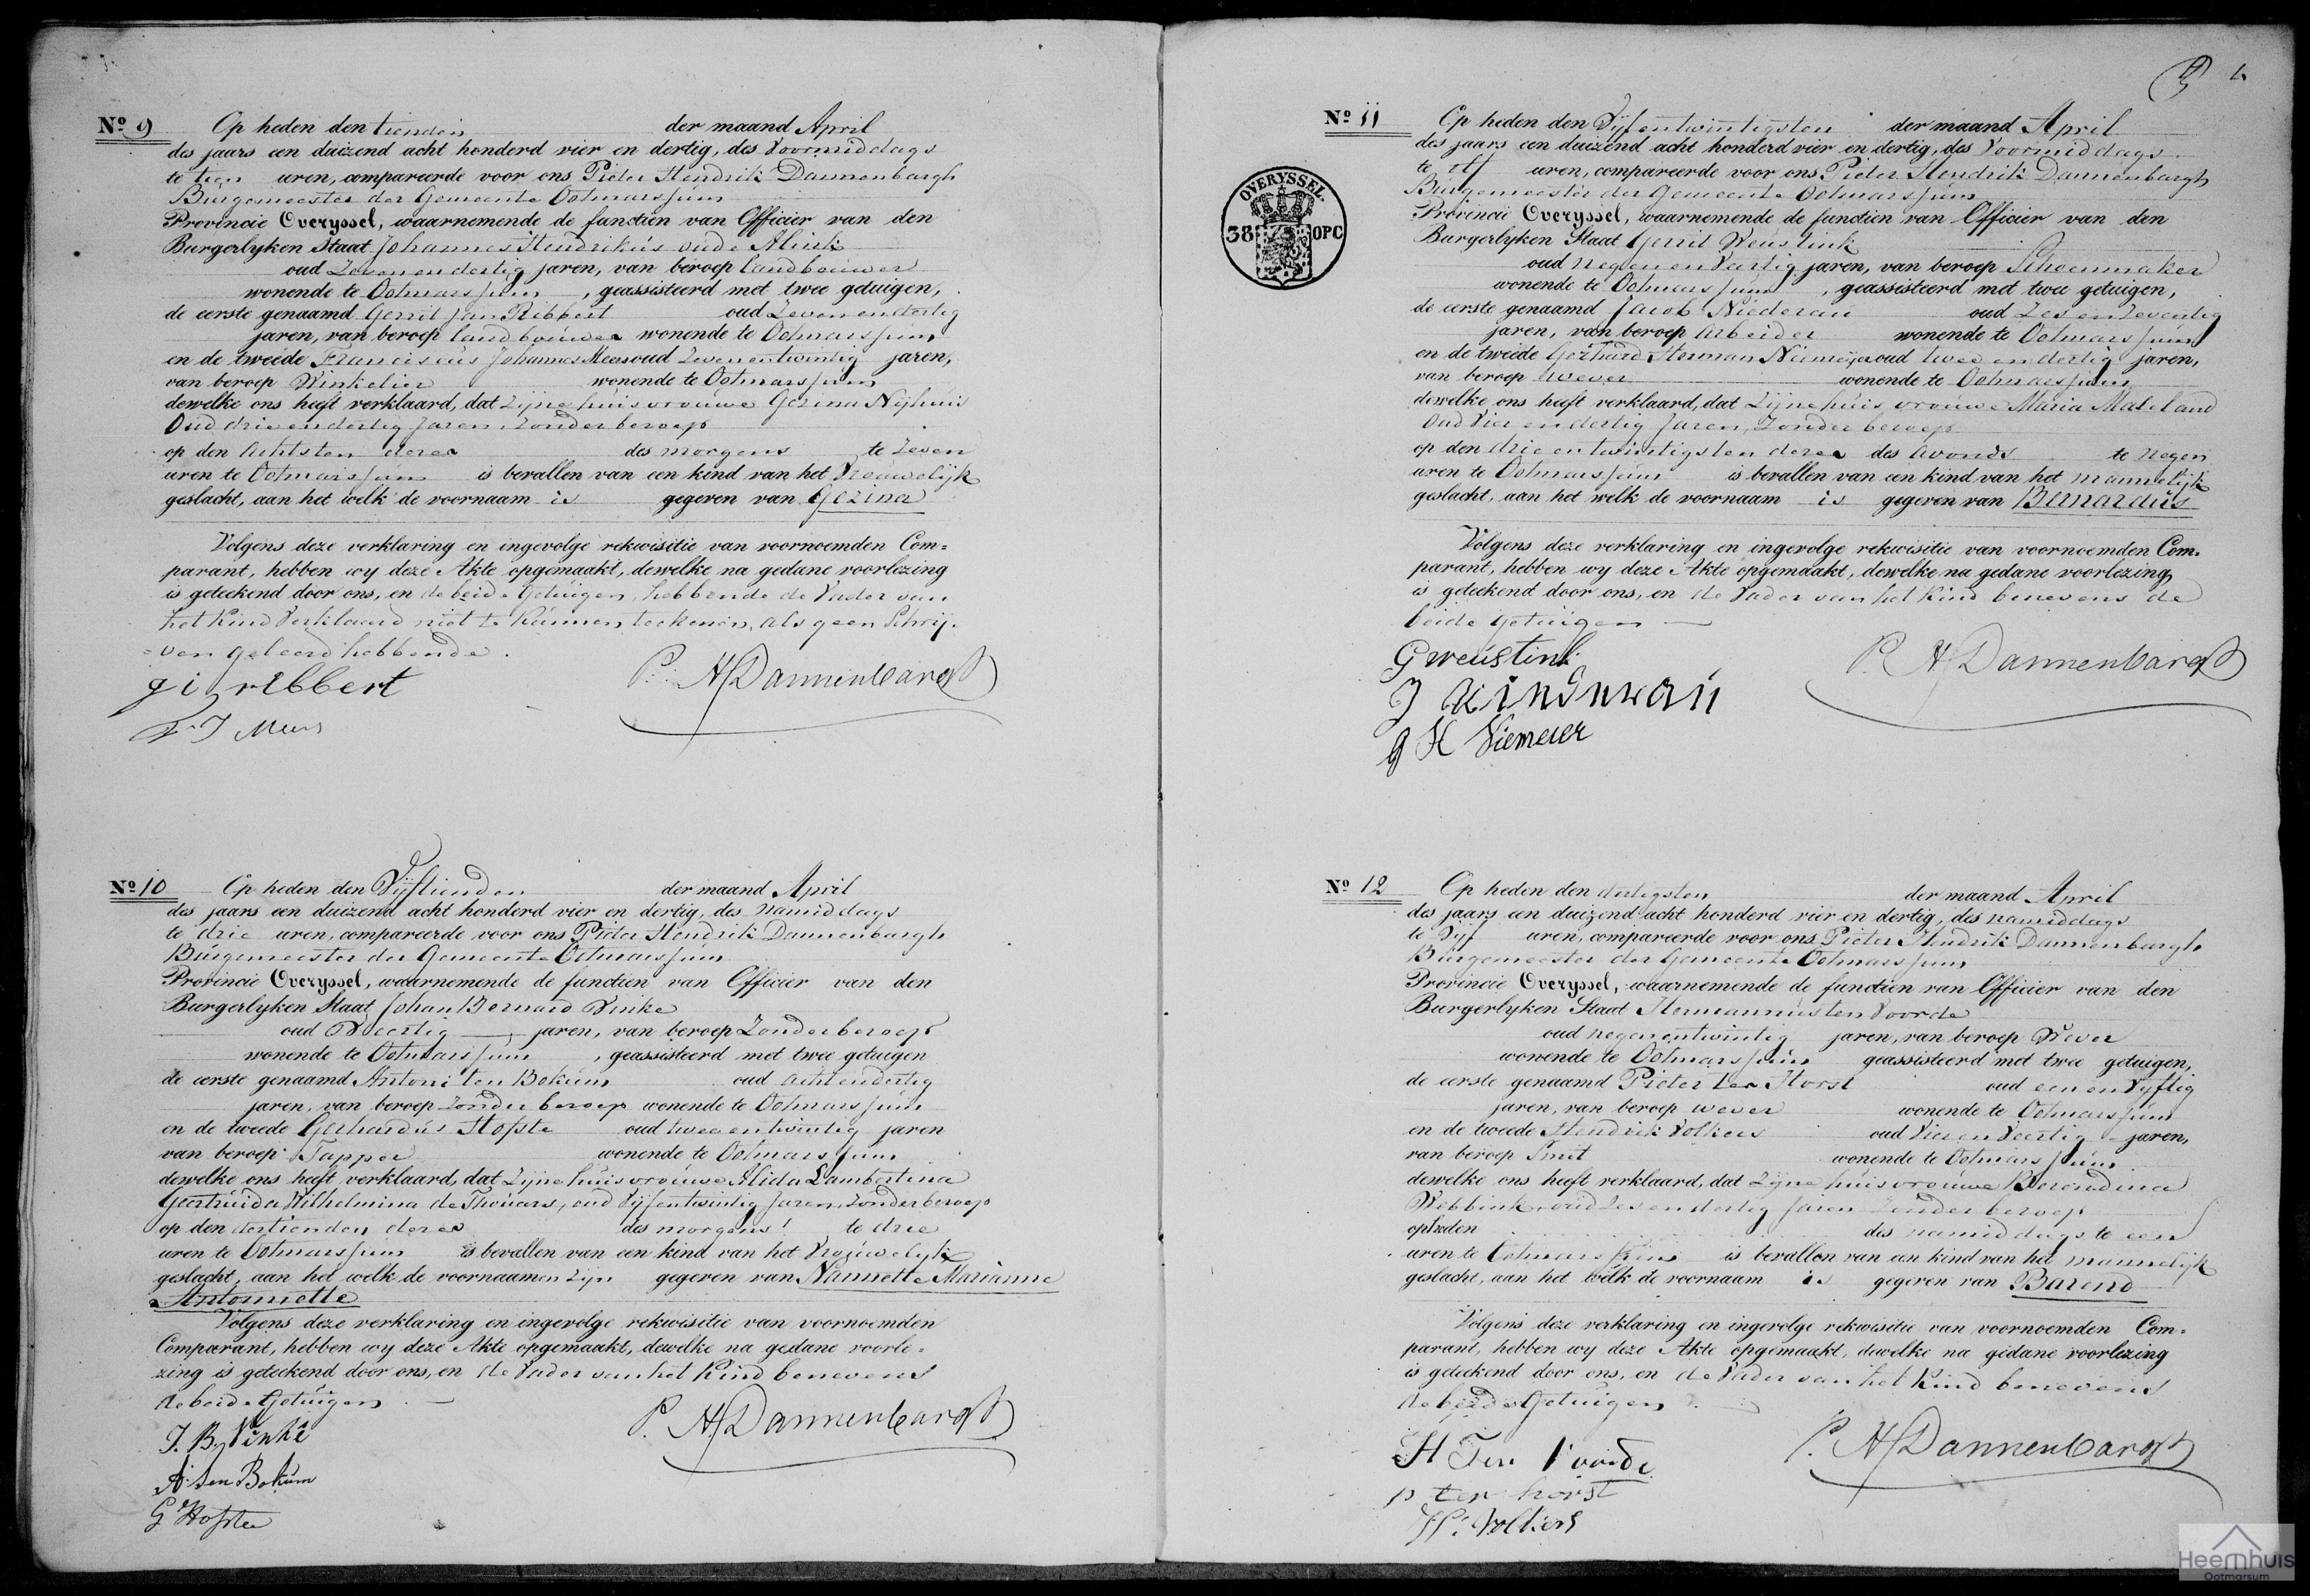 Nº 9 Op heden den tienden der maand April
des jaars een duizend acht honderd vier en dertig, des Voormiddags
te tien uren, compareerde voor ons Pieter Hendrik Dannenbargh
Burgemeester der Gemeente Ootmarssum
Provincie Overyssel, waarnemende de functien van Officier van den
Burgerlyken Staat Johannes Hendrikus oude Alink
oud Zevenendertig jaren, van beroep landbouwer
wonende te Ootmarssum, geassisteerd met twee getuigen,
de eerste genaamd Gerrit Jan Ribbert oud Zevenendertig
jaren, van beroep landbouwer wonende te Ootmarssum
en de tweede Franciscus Johannes Mees oud Zevenentwintig jaren,
van beroep Winkelier wonende te Ootmarssum
dewelke ons heeft verklaard, dat Zijne huisvrouwe Gezina Nijhuis
Oud drieendertig Jaren, Zonder beroep
op den Achtsten dezer des morgens te Zeven
uren te Ootmarssum is bevallen van een kind van het Vrouwelijk
geslacht, aan het welk de voornaam is gegeven van Gezina
Volgens deze verklaring en ingevolge rekwisitie van voornoemden Com=
parant, hebben wy deze Akte opgemaakt, dewelke na gedane voorlezing
is geteekend door ons, en de beide Getuigen, hebbende de Vader van
het Kind Verklaard niet te Kunnen teekenen, als geen Schrij-
=ven geleerd hebbende.
g i ribbert
P. H Dannenbargh
F. J Mees
Nº 10 Op heden den Vijftienden der maand April
des jaars een duizend acht honderd vier en dertig, des namiddags
te drie uren, compareerde voor ons Pieter Hendrik Dannenbargh
Burgemeester der Gemeente Ootmarssum
Provincie Overyssel, waarnemende de functien van Officier van den
Burgerlyken Staat Johan Bernard Vinke
oud Veertig jaren, van beroep Zonder beroep
wonende te Ootmarssum, geassisteerd met twee getuigen
de eerste genaamd Antoni ten Bokum oud achtendertig
jaren, van beroep Zonder beroep wonende te Ootmarssum
en de tweede Gerhardus Hofste oud tweeentwintig jaren
van beroep Tapper wonende te Ootmarssum
dewelke ons heeft verklaard, dat Zijne huisvrouwe Alida Lambertina
Geertruida Wilhelmina de Thouars, oud Vijfentwintig Jaren, Zonder beroep
op den dertienden dezer des morgens te drie
uren te Ootmarssum is bevallen van een kind van het Vrouwelijk
geslacht, aan het welk de voornaamen Zijn gegeven van Nannette Marianne
Antoinette
Volgens deze verklaring en ingevolge rekwisitie van voornoemden
Comparant, hebben wy deze Akte opgemaakt, dewelke na gedane voorle=
zing is geteekend door ons, en de Vader van het Kind benevens
de beide Getuigen
J. B. Vinke
P. H Dannenbargh
A. ten Bokum
G Hofste
Nº 11 Op heden den Vijfentwintigsten der maand April
des jaars een duizend acht honderd vier en dertig, des Voormiddags
te elf uren, compareerde voor ons Pieter Hendrik Dannenbargh
Burgemeester der Gemeente Ootmarssum
Provincie Overyssel, waarnemende de functien van Officier van den
Burgerlyken Staat Gerrit Weustink
oud negenenveertig jaren, van beroep Schoenmaker
wonende te Ootmarssum, geassisteerd met twee getuigen,
de eerste genaamd Jacob Niederau oud Zesenzeventig
jaren, van beroep Arbeider wonende te Ootmarssum
en de tweede Gerhard Herman Niemeijer oud tweeendertig jaren,
van beroep Wever wonende te Ootmarssum
dewelke ons heeft verklaard, dat Zijne huisvrouwe Maria Maseland
Oud Vierendertig Jaren, Zonder beroep
op den drieentwintigsten dezer des avonds te negen
uren te Ootmarssum is bevallen van een kind van het mannelijk
geslacht, aan het welk de voornaam is gegeven van Bernardus
Volgens deze verklaring en ingevolge rekwisitie van voornoemden Com=
parant, hebben wy deze Akte opgemaakt, dewelke na gedane voorlezing
is geteekend door ons, en de Vader van het Kind benevens de
beide getuigen
G weustink
P. H Dannenbargh
G H Niemeier
OVERYSSEL.
38 OPC
Nº 12 Op heden den dertigsten der maand April
des jaars een duizend acht honderd vier en dertig, des namiddags
te Vijf uren, compareerde voor ons Pieter Hendrik Dannenbargh
Burgemeester der Gemeente Ootmarssum
Provincie Overyssel, waarnemende de functien van Officier van den
Burgerlyken Staat Hermannus ten Voorde
oud negenentwintig jaren, van beroep Wever
wonende te Ootmarssum geassisteerd met twee getuigen,
de eerste genaamd Pieter ter Horst oud eenenvyftig
jaren, van beroep wever wonende te Ootmarssum
en de tweede Hendrik Volkers oud Vierenveertig jaren,
van beroep Smit wonende te Ootmarssum
dewelke ons heeft verklaard, dat Zijne huisvrouwe Berendina
Webbink, oud Zesendertig Jaren Zonder beroep
op heden des namiddags te een
uren te Ootmarssum is bevallen van een kind van het mannelijk
geslacht, aan het welk de voornaam is gegeven van Barend
Volgens deze verklaring en ingevolge rekwisitie van voornoemden Com=
parant, hebben wy deze Akte opgemaakt, dewelke na gedane voorlezing
is geteekend door ons, en de Vader van het Kind benevens
de beide Getuigen
H Ten Voorde
P. H Dannenbargh
p ter horst
H. Volkers
Heemhuis
Ootmarsum